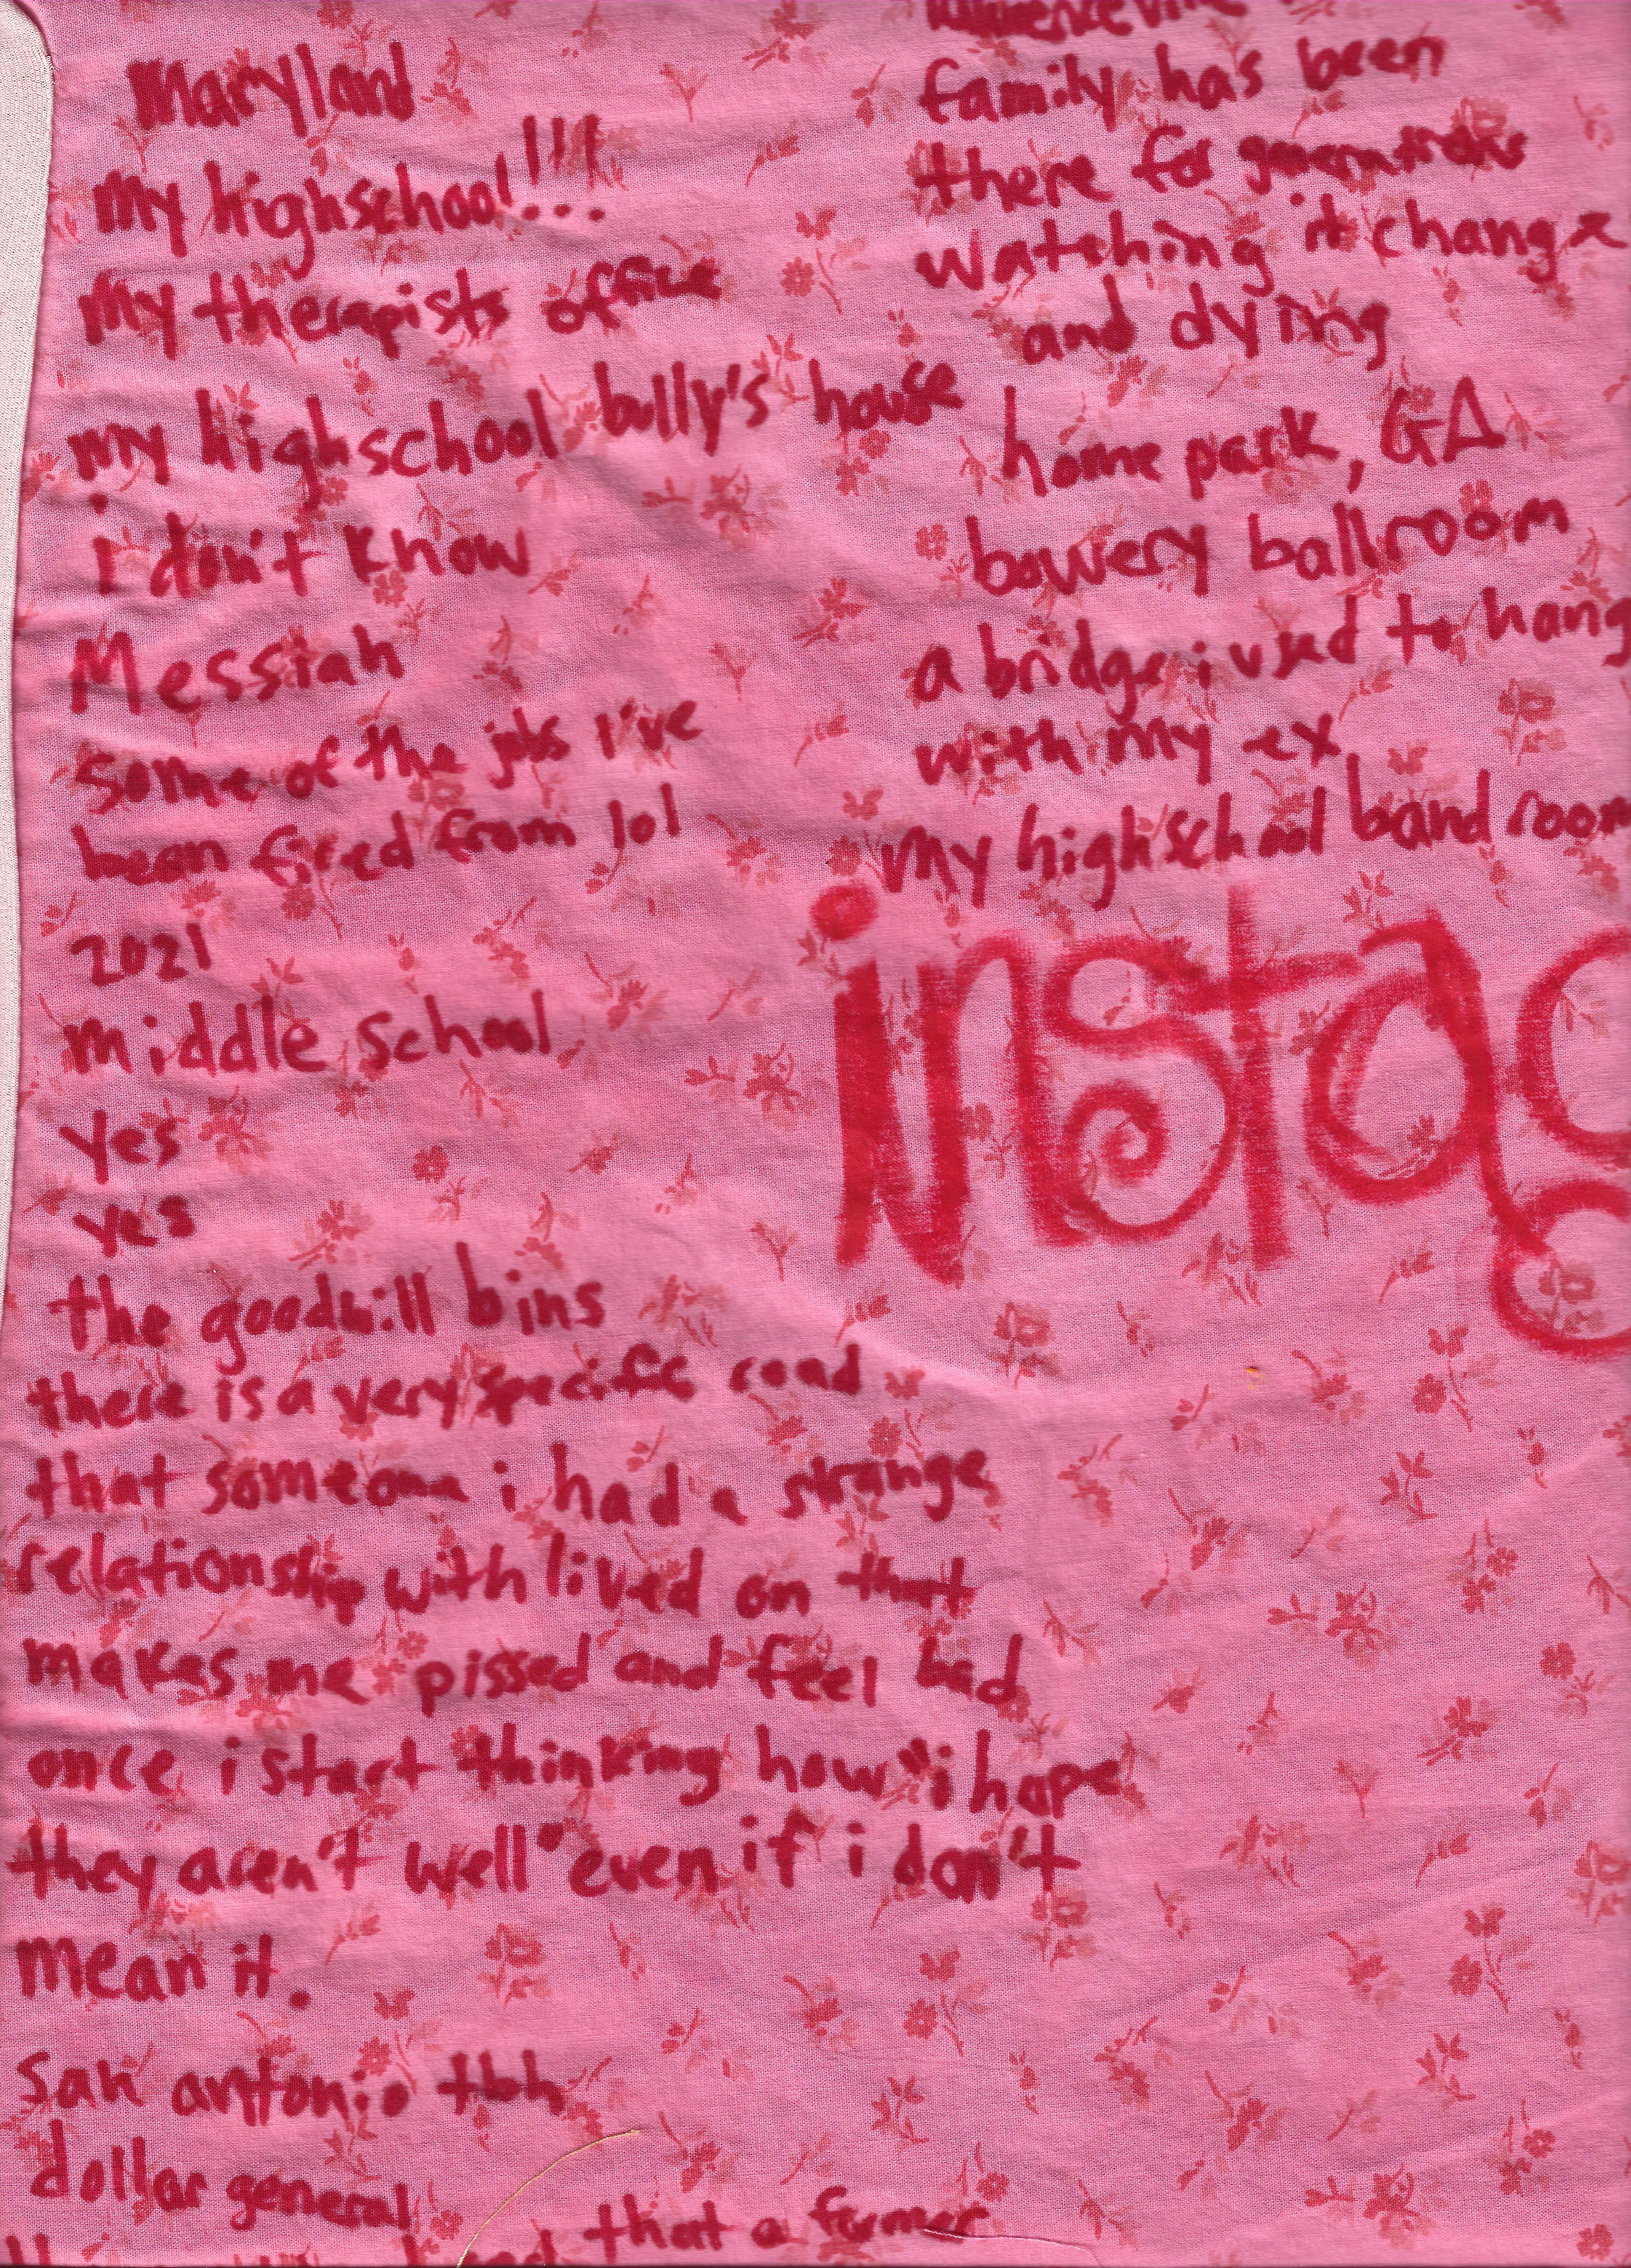 Maryland
my highschool!!!
my therapists office
my highschool bully's house
i don't know
Messiah
some of the jobs I've
been fired from lol
2021
middle school
yes
yes
the goodwill bins
there is a very specific road
that someone i had a strange
relationship with lived on that
makes me pissed and feel bad
once i start thinking how "i hope
they aren't well" even if i don't
mean it.
san antonio tbh
dollar general
that a former
family has been
there for generations
watching it change
and dying
home park, GA
bowery ballroom
a bridge i used to hang
with my ex
my highschool band room
instag